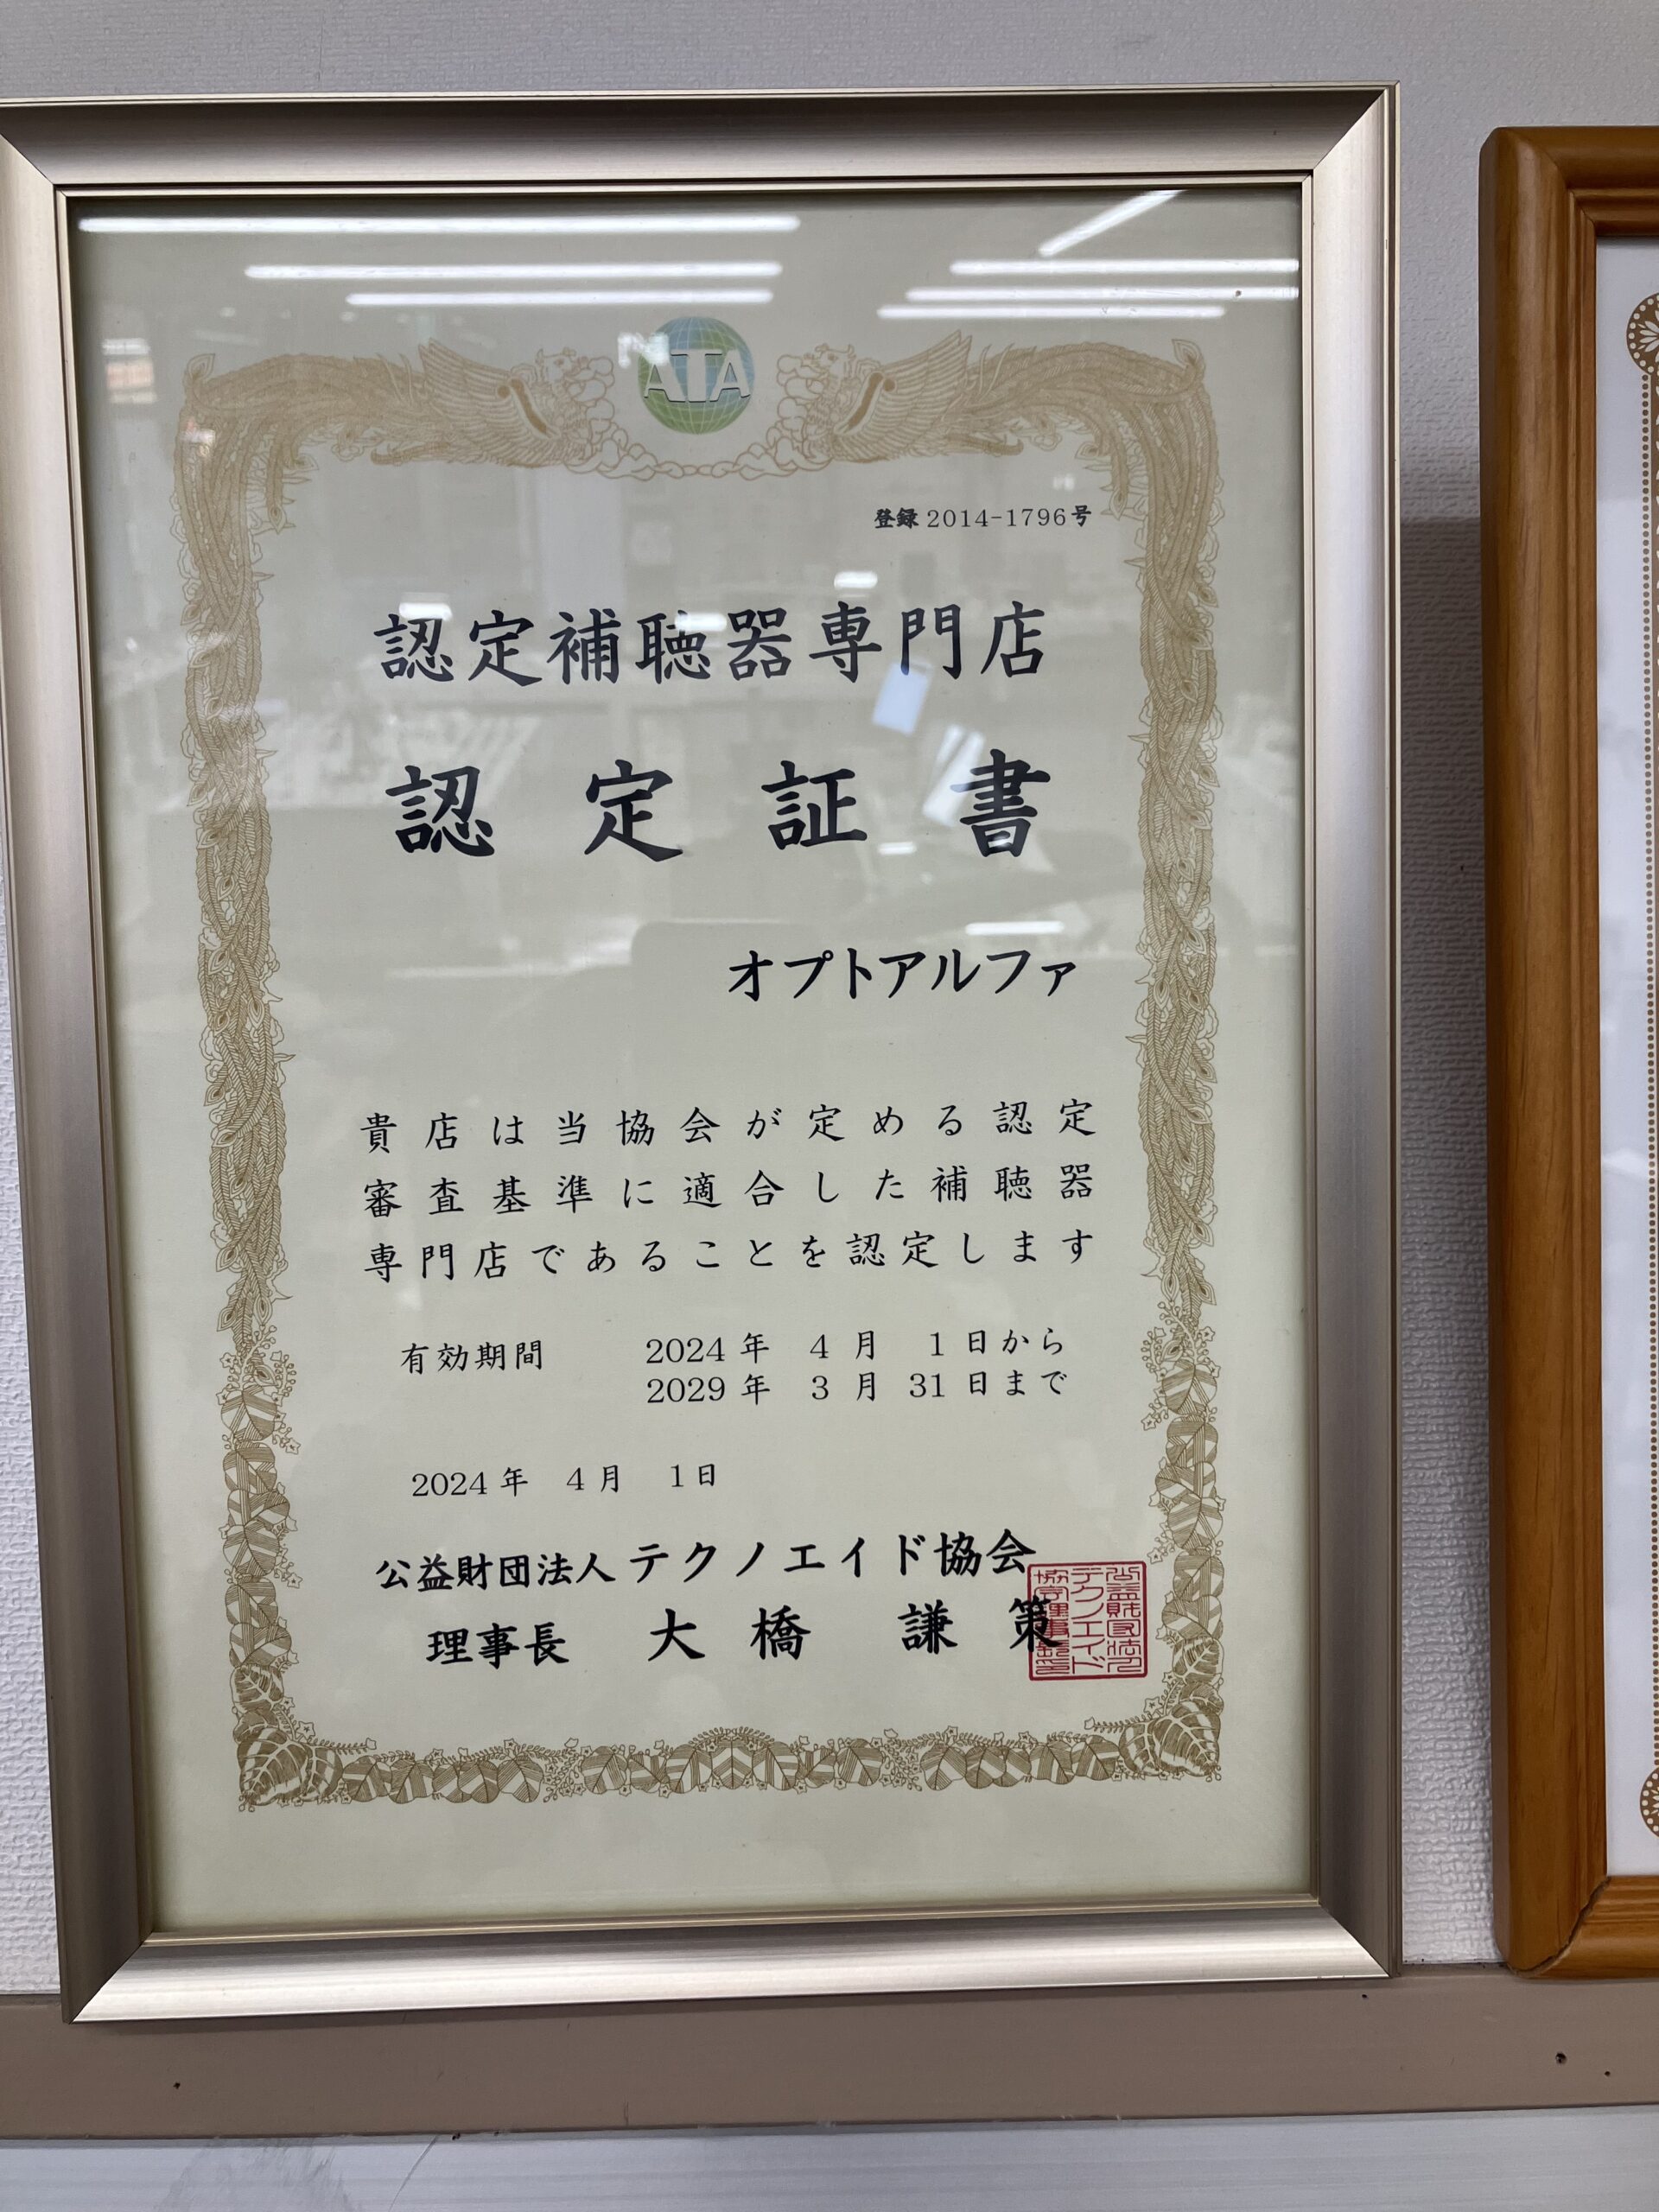 ATA
登録2014-1796号
認定補聴器専門店
認定証書
オプトアルファ
貴店は当協会が定める認定
審査基準に適合した補聴器
専門店であることを認定します
有効期間 2024年 4月 1日から
2029年 3月 31日まで
2024年 4月 1日
公益財団法人テクノエイド協会
理事長 大橋 謙策
公益財団法人
テクノエイド
協会理事長印